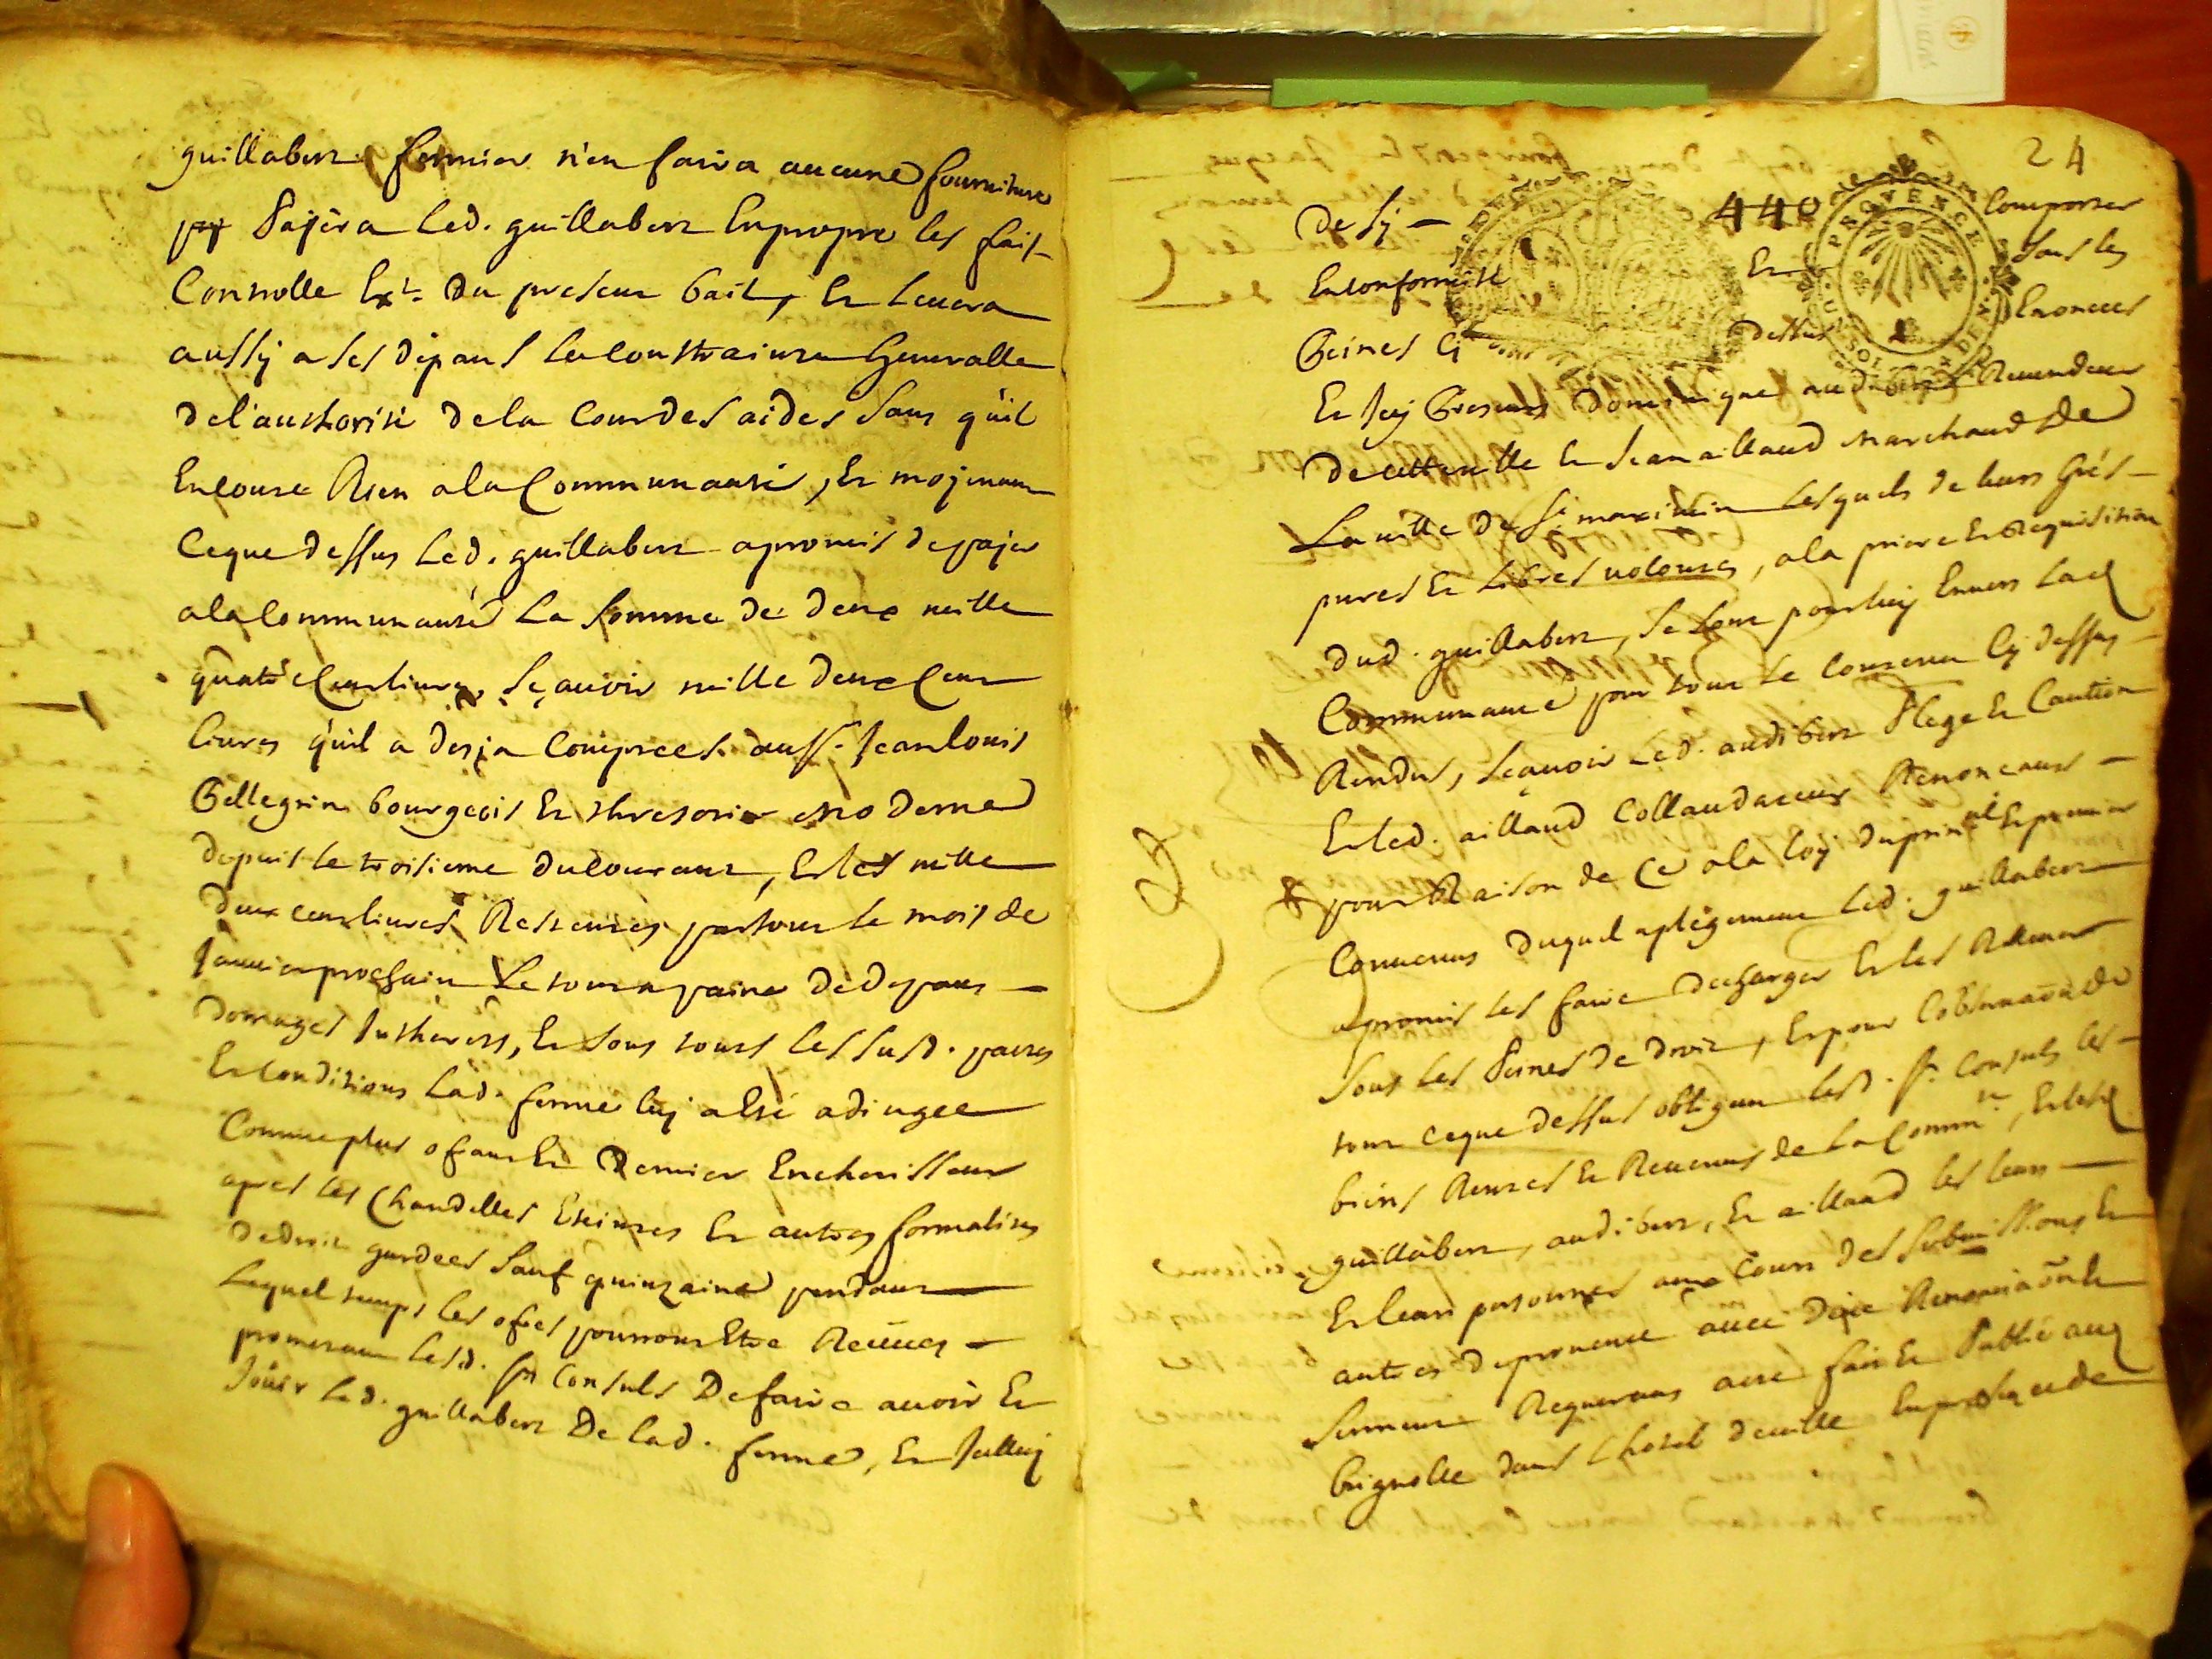 guillabert fermier n'en faira aucune fourniture
Pajera led. guillabert en propre les frais
Controlle Ext. du present bail, Et levera
aussy a ses dépans la Contrainte Generalle
de l'authorité de la Cour des aides sans qu'il
En coute Rien a la Communauté, Et mojenant
ce que dessus Led. guillabert a promis de pajer
a la Communauté La somme de deux mille
quatre Cent livres, sçavoir mille deux Cent
livres qu'il a desja Comptées. au sr. Jean louis
Pellegrin bourgeois Et thresorier moderne
depuis le troisieme du Courant, Et les mille
deux cent livres Restentes partout le mois de
Janvier prochain Le tout a paine de depans
domages Intherets, Et sous tous les susd. pactes
Et Conditions Lad. ferme luj a Eté adjugée
Comme plus ofrant Et Dernier Encherisseur
apres les Chandelles Eteintes Et autres formalites
de droit gardées sauf quinzaine pendant
Lequel temps les ofres pourront Etre Reçues
promettant lesd. srs Consuls De faire avoir Et
Joüir led. guillabert De lad. ferme, Et
24
440
PROVENCE
de sy Comporter
En conformité Et sous les
Peines Cy dessus Enoncees
Et Icy Presents Dominique audibert Revendeur
de cette ville Et Jean aillaud marchand de
La ville de St maximin Lesquels de leurs Grés
pures Et Libres volontes, a la priere Et Requisition
dud. guillabert, se sont pour luy Envers Lad
Communauté pour tout le Contenu Cy dessus
Rendus, sçavoir Led. audibert Plege Et Caution
Et led. aillaud Collaudateur Renonçant
pour Raison de Ce a la loy du prinal Et premier
Convenus duquel aplégement led. guillabert
a promis les faire decharger Et les Relever
sous les Peines De Droit, Et pour l'observation de
tout ce que dessus obligeant lesd. srs Consuls les
biens Rentes Et Revenus de La Commté, Et lesd
guillabert, audibert, Et aillaud les leurs
Et leurs personnes aux Cours des submissions Et
autres de provence avec deüe Renonciation Et
serment Requerant acte fait Et Publié aud
brignolle dans l'hotel de ville En presence de